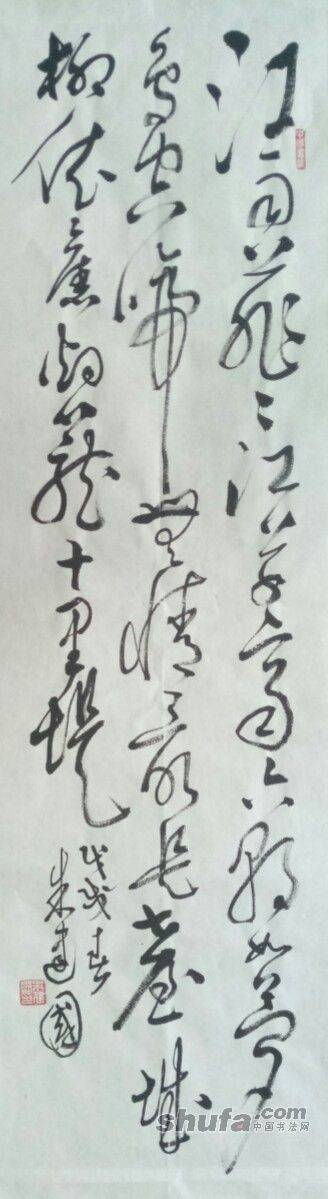 江雨霏霏江草齐六朝如梦
鸟空啼无情最是台城
柳依旧烟笼十里堤
戊戌春
朱建国
shufa.com
中国书法网